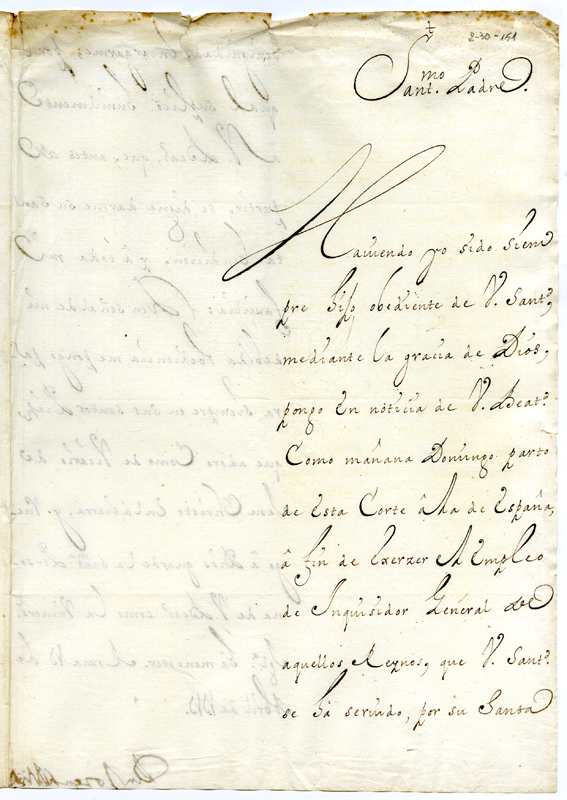 2-30-151
✝
Sant.mo Padre.
Haviendo yo sido siem
pre hijo obediente de V. Sant.d,
mediante la gracia de Dios,
pongo en noticia de V. Beat.d
Como mañana Domingo parto
de Esta Corte â la de España,
â fin de Exerzer el Empleo
de Inquisidor General de
aquellos Reynos, que V. Sant.d
se ha seruido, por su Santa